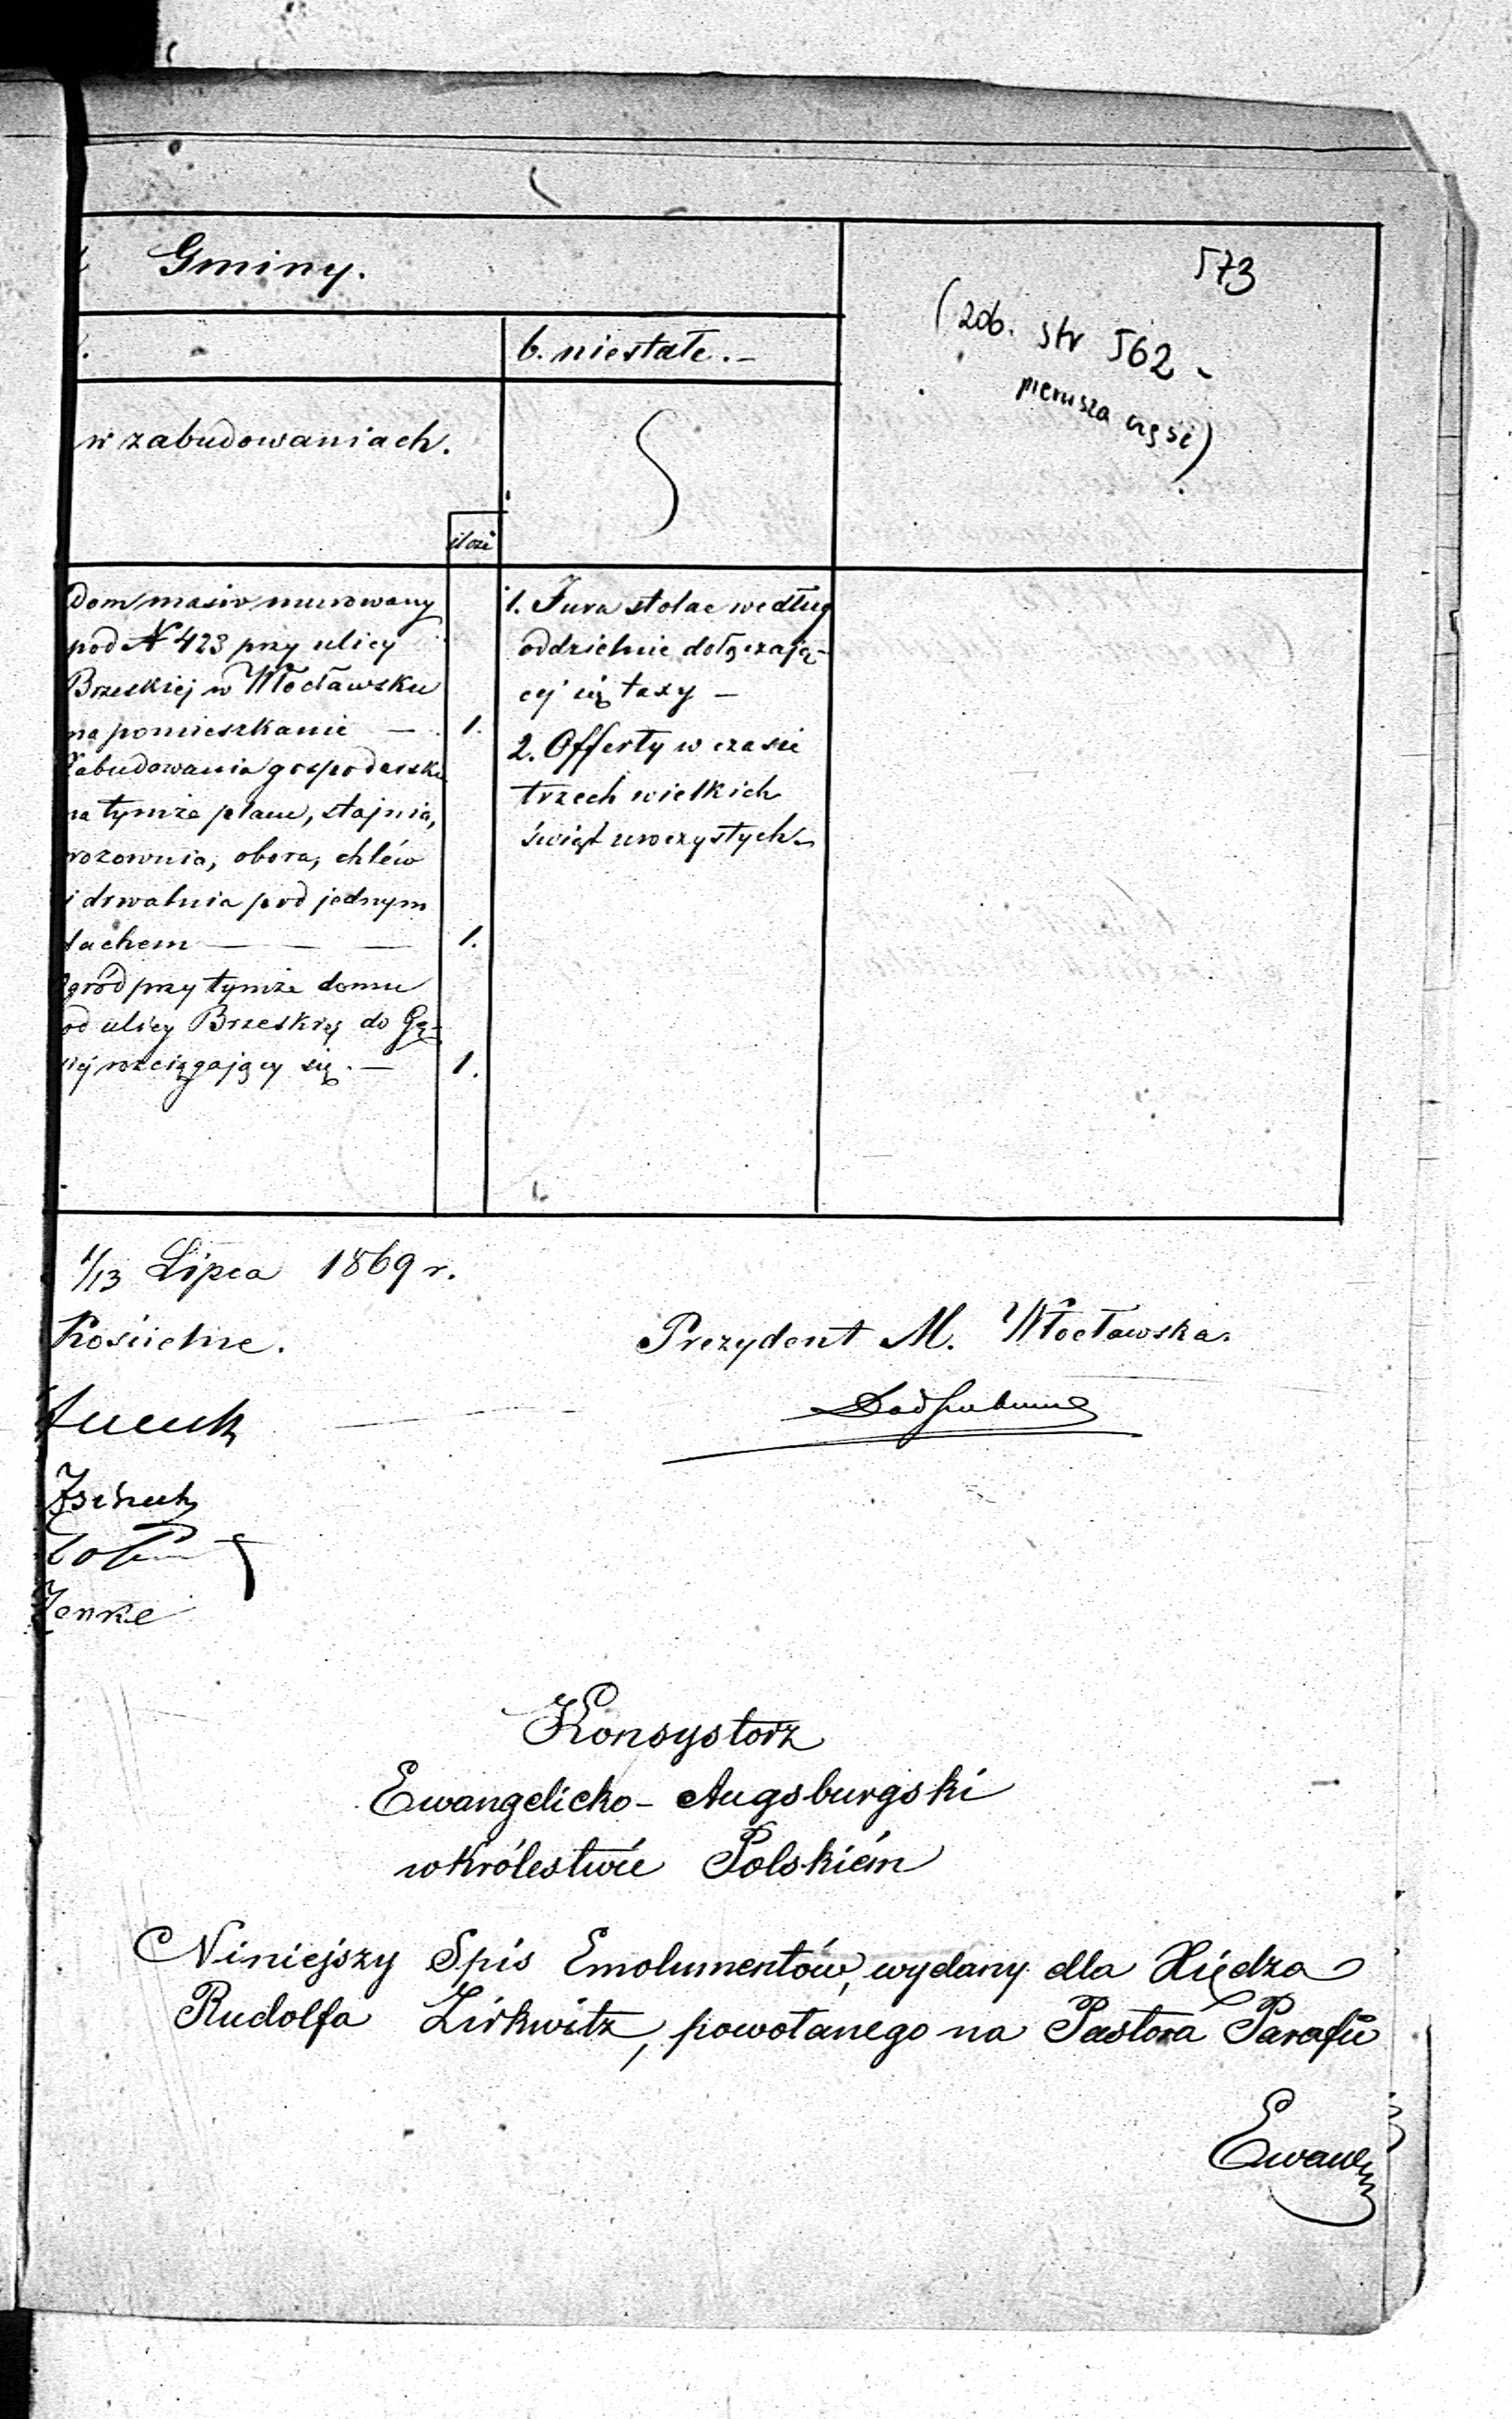 573
Gminy.
(zob. str 562 -
pierwsza część)
b. niestałe. -
w zabudowaniach.
ilość
Dom masiw murowany
pod № 423 przy ulicy
Brzeskiej w Włocławsku
na pomieszkanie — 1.
Zabudowania gospodarskie
na tymże placu, stajnia,
wozownia, obora, chléw
i drwalnia pod jednym
dachem — — — 1.
Ogród przy tymże domu
od ulicy Brzeskiej do Gę-
siej rozciągający się. — 1.
1. Jura stolae według
oddzielnie dołączają-
cej się taxy —
2. Offerty w czasie
trzech wielkich
świąt uroczystych
1/13 Lipca 1869 r.
Kościelne.
Prezydent M. Włocławska.
Zenke
Konsystorz
Ewangelicko-Augsburgski
w Królestwie Polskiém
Niniejszy Spis Emolumentów, wydany dla Xiędza
Rudolfa Zirkwitz, powołanego na Pastora Parafii
Ewang